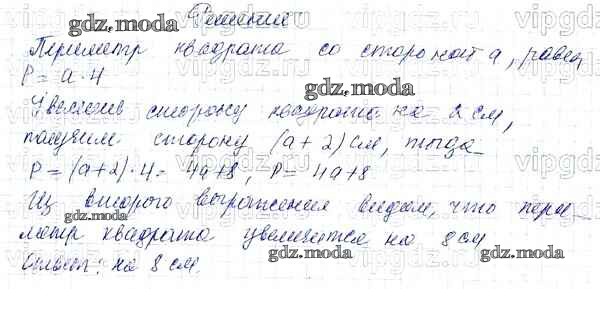 Решение
Периметр квадрата со стороной а, равен
P = a · 4
Увеличив сторону квадрата на 2 см,
получим сторону (a + 2) см, тогда
P = (a+2) · 4 = 4a+8, P = 4a+8
Из второго выражения видим, что пери-
метр квадрата увеличится на 8 см
Ответ: на 8 см.
gdz.moda
gdz.moda
gdz.moda
gdz.moda
gdz.moda
gdz.moda
gdz.moda
vipgdz
vipgdz
vipgdz
vipgdz